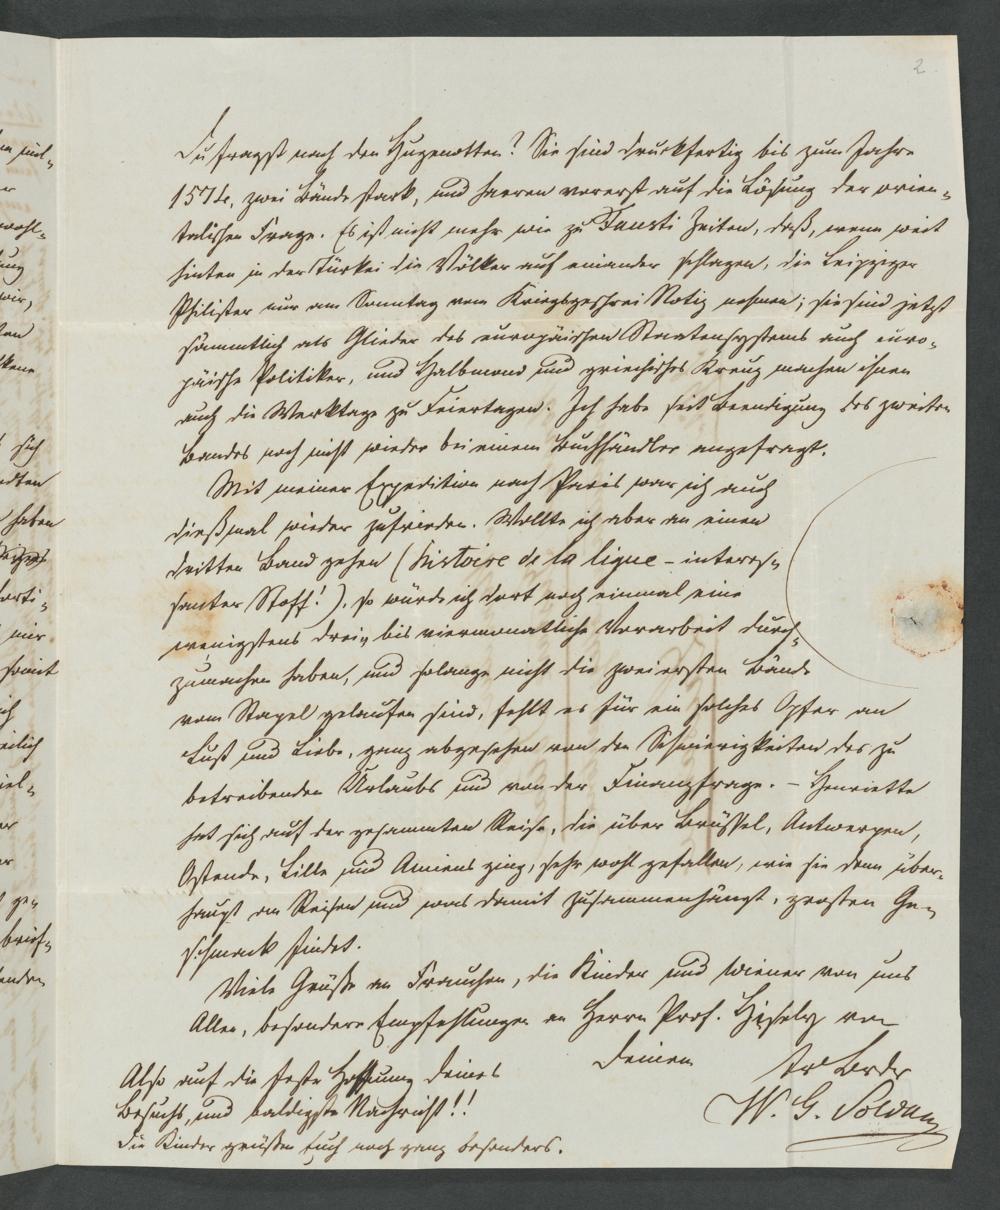 2.
Du fragst nach den Hugenotten? Sie sind druckfertig bis zum Jahre
1574, zwei Bände stark, und harren vorerst auf die Lösung der orien-
talischen Frage. Es ist nicht mehr wie zu Fausti Zeiten, daß, wenn weit
hinten in der Türkei die Völker auf einander schlagen, die Leipziger
Philister nur am Sonntag vom Kriegsgeschrei Notiz nehmen; sie sind jetzt
sämmtlich als Glieder des europäischen Staatensystems auch euro-
päische Politiker, und Halbmond und griechisches Kreuz machen ihnen
auch die Werktage zu Feiertagen. Ich habe seit Beendigung des zweiten
Bandes noch nicht wieder bei einem Buchhändler angefragt.
Mit meiner Expedition nach Paris war ich auch
dießmal wieder zufrieden. Wollte ich aber an einen
dritten Band gehen (histoire de la ligue - interes-
santer Stoff!), so würde ich dort noch einmal eine
wenigstens drei- bis viermonatliche Vorarbeit durch-
zumachen haben, und solange nicht die zwei ersten Bände
vom Stapel gelaufen sind, fehlt es für ein solches Opfer an
Lust und Liebe, ganz abgesehen von den Schwierigkeiten des zu
betreibenden Urlaubs und von der Finanzfrage. - Henriette
hat sich auf der gesammten Reise, die über Brüssel, Antwerpen,
Ostende, Lille und Amiens ging, sehr wohl gefallen, wie sie denn über-
haupt an Reisen und was damit zusammenhängt, großen Ge-
schmack findet.
Viele Grüße an Frauchen, die Kinder und Wiener von uns
Allen, besondere Empfehlungen an Herrn Prof. Hisely von
Deinem
W. G. Soldan
Also auf die feste Hoffnung Deines
Besuchs, und baldigste Nachricht!!
Die Kinder grüßen Euch noch ganz besonders.